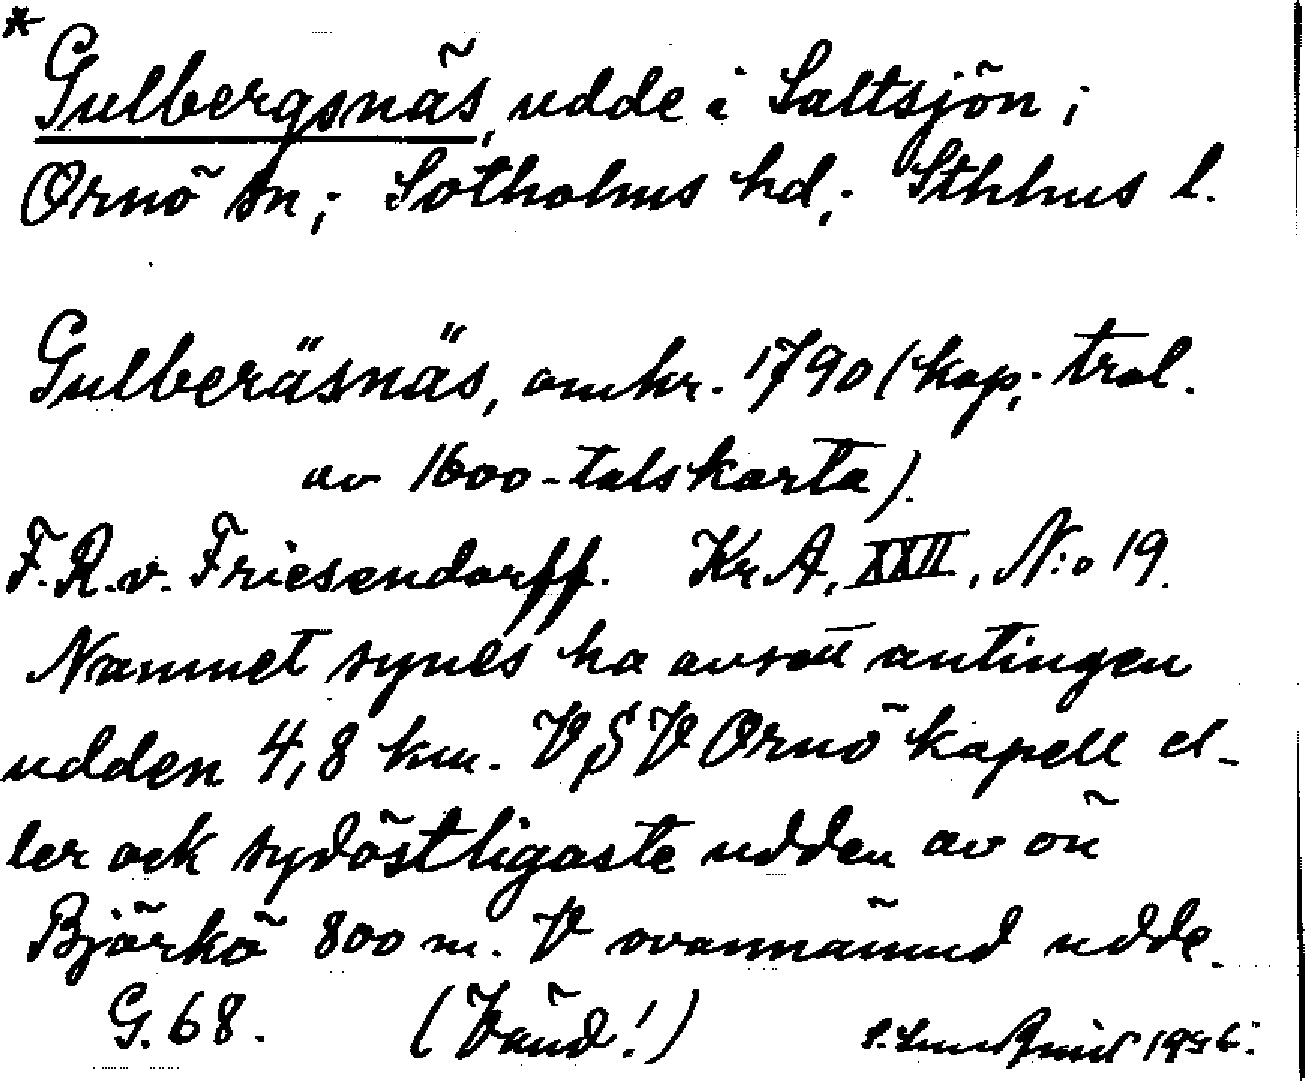 * Gulbergsnäs, udde i Saltsjön;
Ornö sn; Sotholms hd; Sthlms l.
Gulberäsnäs, omkr. 1790 (kop. trol.
av 1600-talskarta).
F.R.v. Friesendorff. Kr.A, XXII, N:o 19.
Namnet synes ha avsett antingen
udden 4,8 km. VSV Ornö kapell el-
ler ock sydöstligaste udden av ön
Björkö 800 m. V ovannämnd udde.
G. 68. (Vänd!) 1956.